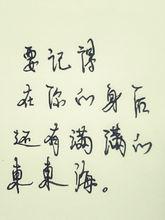 要记得
在你的身后
还有满满的
東東海。